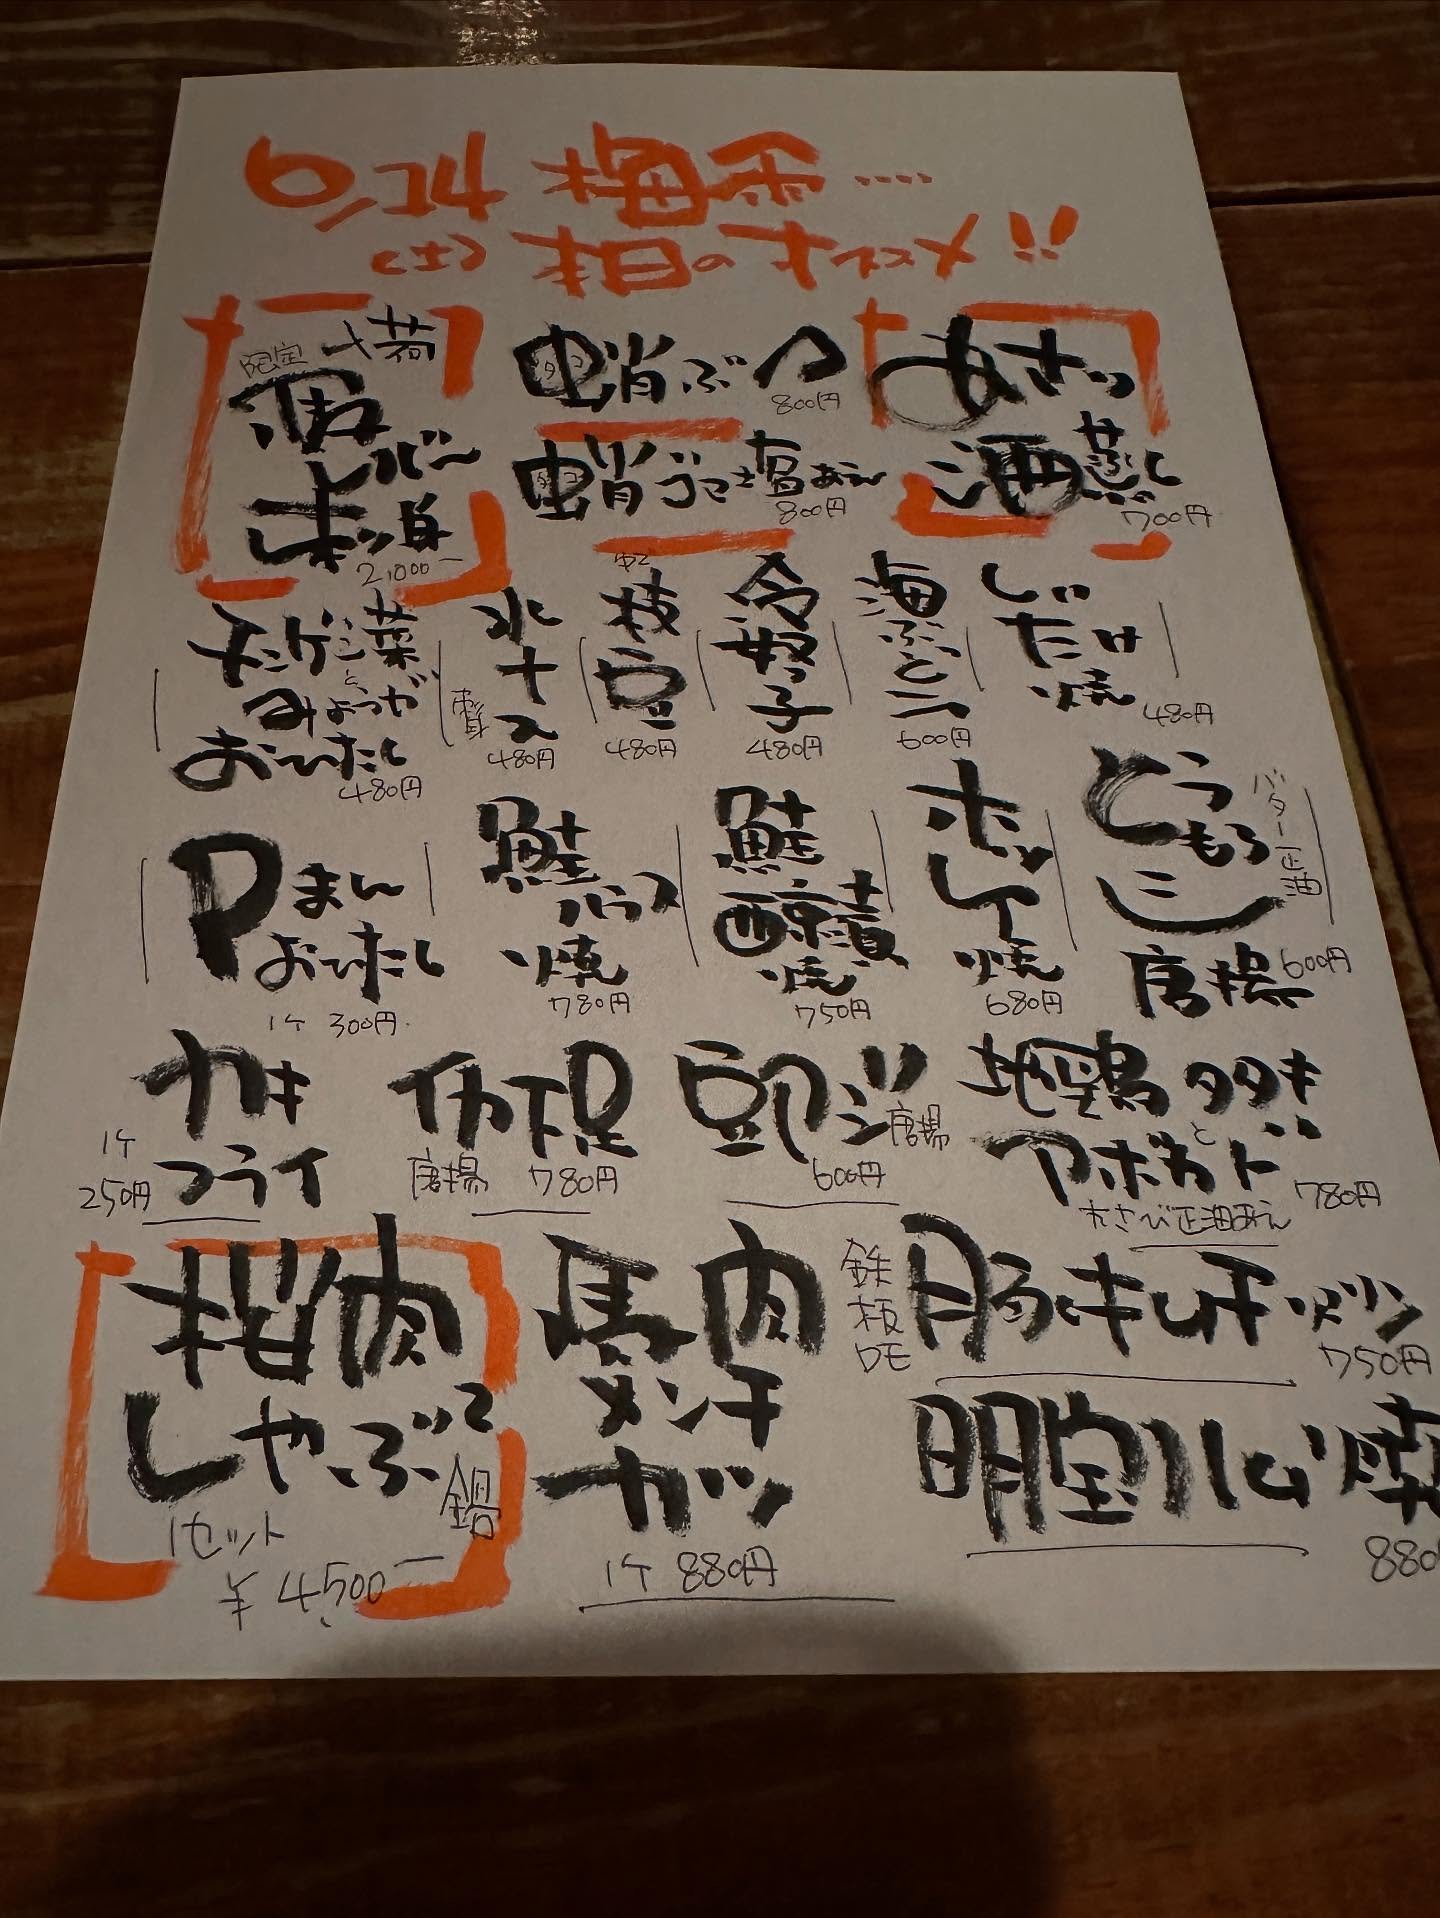 6/14 梅雨‥‥
(土) 本日のオススメ!!
限定 入荷
レバー
刺身
2,000ー
蛸ぶつ
タコ
800円
蛸ゴマ塩あえ
タコ
800円
あさり
酒蒸し
700円
チンゲン菜
と
みょうが
おひたし
480円
水ナス
480円
枝豆
480円
冷奴っ子
480円
海ぶどう
600円
しいたけ焼
480円
Pまん
おひたし
1ケ 300円
鮭ハラス焼
780円
鮭
焼
750円
ホッケ焼
680円
とうもろこし
バター正油
唐揚
600円
カキ
フライ
1ケ
250円
下足
唐揚 780円
唐揚
600円
地鶏タタキ
と
アボカド
わさび正油あえ
780円
桜肉
しゃぶしゃぶ
鍋
1セット
¥4,500ー
馬肉
メンチ
カツ
1ケ 880円
鉄板DE
豚キムチ
750円
明宝ハム焼
880